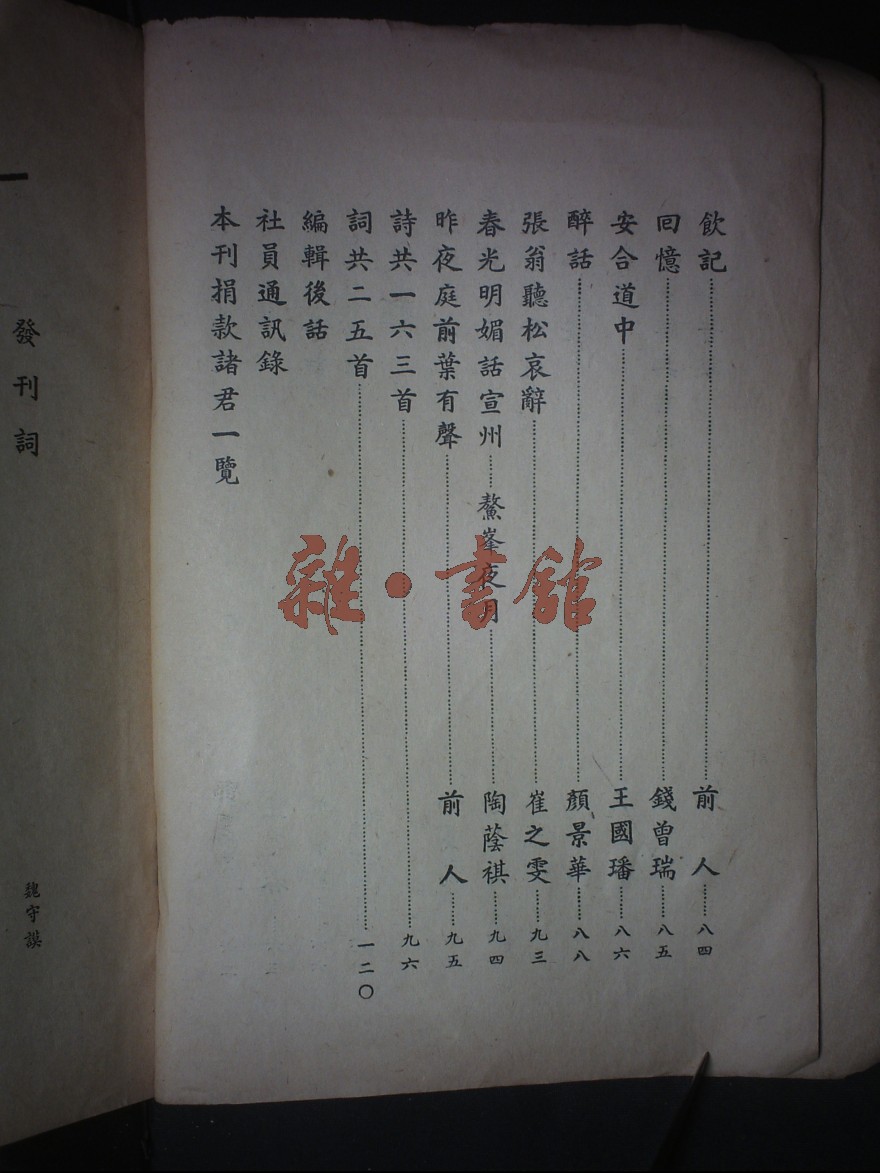 飲記……前人……八四
回憶……錢曾瑞……八五
安合道中……王國璠……八六
醉話……顏景華……八八
張翁聽松哀辭……崔之雯……九三
春光明媚話宣州……鰲峯夜月……陶蔭祺……九四
昨夜庭前葉有聲……前人……九五
詩共一六三首……九六
詞共二五首……一二〇
編輯後話
社員通訊錄
本刊捐款諸君一覽
發刊詞
魏守謨
雜·書館